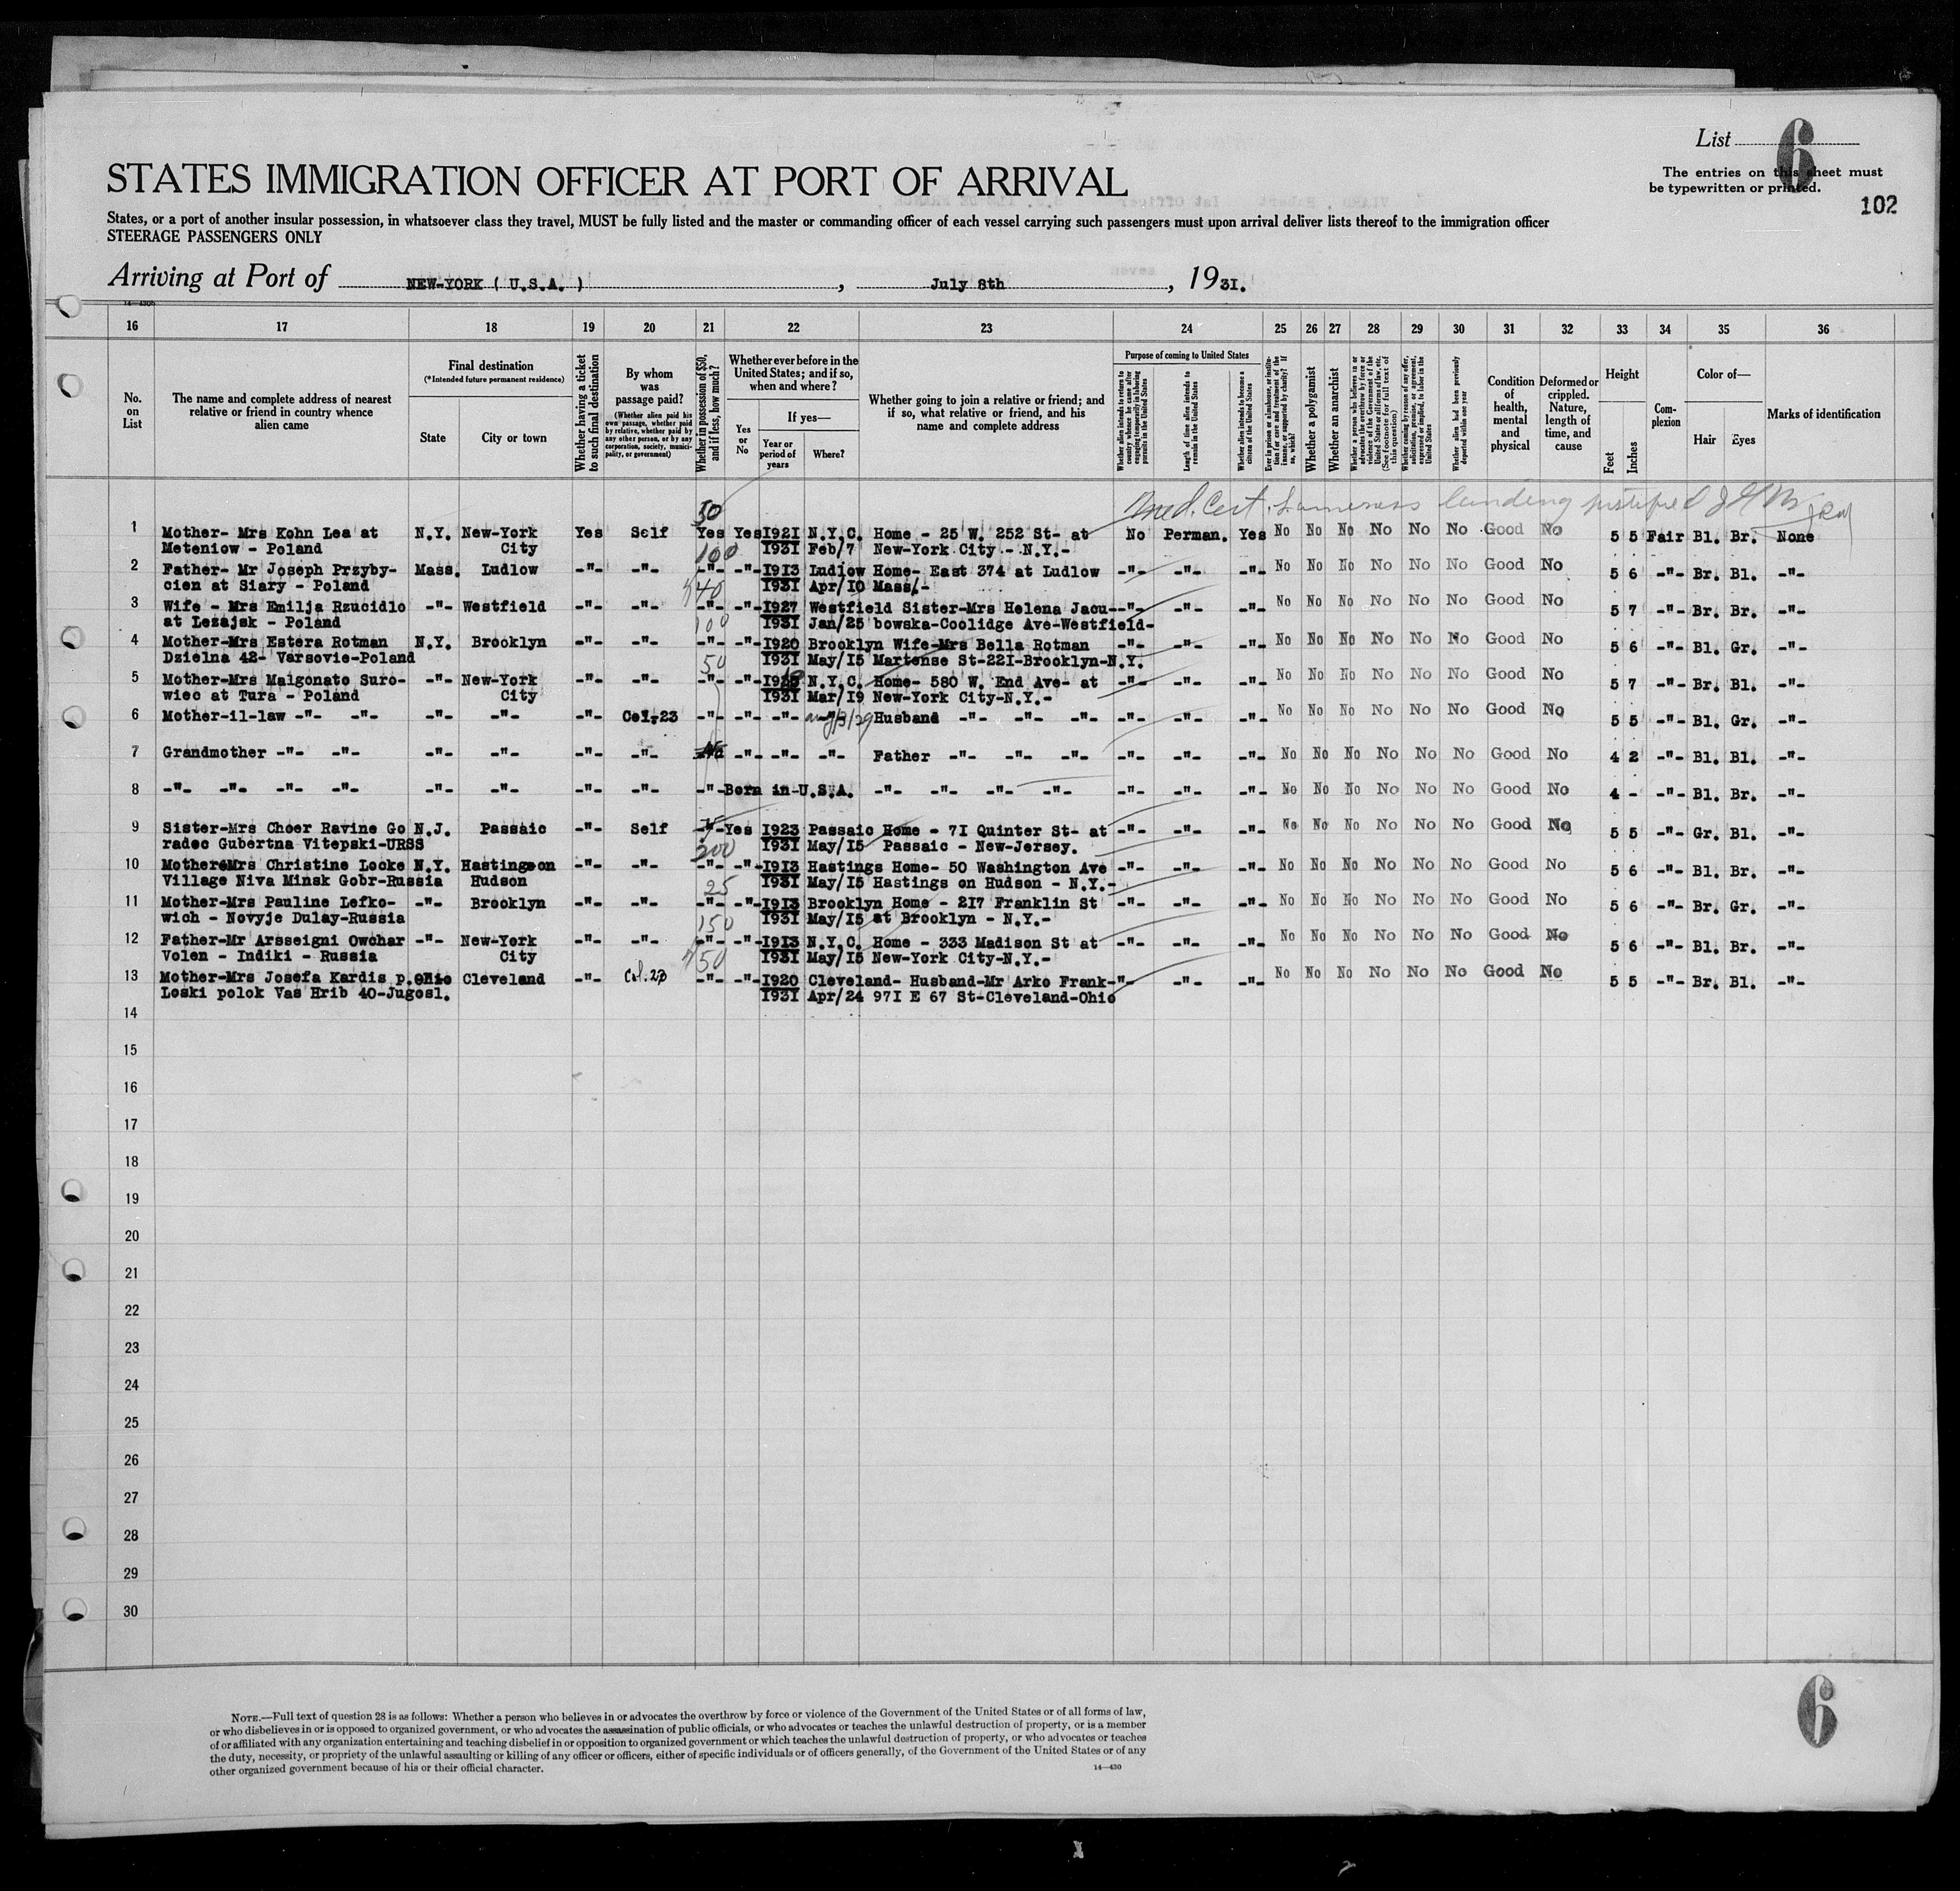 List 6
The entries on this sheet must
be typewritten or printed.
102
STATES IMMIGRATION OFFICER AT PORT OF ARRIVAL
States, or a port of another insular possession, in whatsoever class they travel, MUST be fully listed and the master or commanding officer of each vessel carrying such passengers must upon arrival deliver lists thereof to the immigration officer
STEERAGE PASSENGERS ONLY
Arriving at Port of NEW-YORK ( U.S.A. ) , July 8th , 1931.
16 17 18 19 20 21 22 23 24 25 26 27 28 29 30 31 32 33 34 35 36
No. on List
The name and complete address of nearest relative or friend in country whence alien came
Final destination
(*Intended future permanent residence)
State
City or town
Whether having a ticket to such final destination
By whom was passage paid?
(Whether alien paid his own passage, whether paid by relative, whether paid by any other person, or by any corporation, society, municipality, or government)
Whether in possession of $50, and if less, how much?
Whether ever before in the United States; and if so, when and where?
Yes or No
If yes—
Year or period of years
Where?
Whether going to join a relative or friend; and if so, what relative or friend, and his name and complete address
Purpose of coming to United States
Whether alien intends to return to country whence he came after engaging temporarily in laboring pursuits in the United States
Length of time alien intends to remain in the United States
Whether alien intends to become a citizen of the United States
Ever in prison or almshouse, or institution for care and treatment of the insane, or supported by charity? If so, which?
Whether a polygamist
Whether an anarchist
Whether a person who believes in or advocates the overthrow by force or violence of the Government of the United States or all forms of law, etc. (See footnote for full text of this question)
Whether coming by reason of any offer, solicitation, promise, or agreement, expressed or implied, to labor in the United States
Whether alien had been previously deported within one year
Condition of health, mental and physical
Deformed or crippled. Nature, length of time, and cause
Height
Feet
Inches
Complexion
Color of—
Hair
Eyes
Marks of identification
Med. Cert. Lameness landing justified
50
1 Mother- Mrs Kohn Lea at N.Y. New-York Yes Self Yes Yes 1921 N.Y.C. Home - 25 W. 252 St- at No Perman. Yes No No No No No No Good No 5 5 Fair Bl. Br. None
Meteniow - Poland City 100 1931 Feb/7 New-York City - N.Y.-
2 Father- Mr Joseph Przyby- Mass. Ludlow -"- -"- -"- -"- 1913 Ludlow Home- East 374 at Ludlow -"- -"- -"- No No No No No No Good No 5 6 -"- Br. Bl. -"-
cien at Siary - Poland 40 1931 Apr/10 Mass/-
3 Wife - Mrs Emilja Rzucidlo -"- Westfield -"- -"- -"- -"- 1927 Westfield Sister-Mrs Helena Jacu- -"- -"- -"- No No No No No No Good No 5 7 -"- Br. Br. -"-
at Lezajsk - Poland 100 1931 Jan/25 bowska-Coolidge Ave-Westfield-
4 Mother-Mrs Estera Rotman N.Y. Brooklyn -"- -"- -"- -"- 1920 Brooklyn Wife-Mrs Bella Rotman -"- -"- -"- No No No No No No Good No 5 6 -"- Bl. Gr. -"-
Dzielna 42- Varsovie-Poland 50 1931 May/15 Martense St-221-Brooklyn-N.Y.
5 Mother-Mrs Maigonato Suro- -"- New-York -"- -"- -"- -"- N.Y.C. Home- 580 W. End Ave- at -"- -"- -"- No No No No No No Good No 5 7 -"- Br. Bl. -"-
wiec at Tura - Poland City 1931 Mar/19 New-York City-N.Y.-
6 Mother-il-law -"- -"- -"- -"- -"- Col-23 -"- -"- -"- Husband -"- -"- -"- -"- -"- -"- No No No No No No Good No 5 5 -"- Bl. Gr. -"-
7 Grandmother -"- -"- -"- -"- -"- -"- No -"- -"- -"- Father -"- -"- -"- -"- -"- -"- No No No No No No Good No 4 2 -"- Bl. Bl. -"-
8 -"- -"- -"- -"- -"- -"- -"- -"- -"- Born in U.S.A. -"- -"- -"- -"- -"- -"- -"- No No No No No No Good No 4 - -"- Bl. Br. -"-
9 Sister-Mrs Choer Ravine Go N.J. Passaic -"- Self -"- Yes 1923 Passaic Home - 71 Quinter St- at -"- -"- -"- No No No No No No Good No 5 5 -"- Gr. Bl. -"-
radec Gubertna Vitepski-URSS 200 1931 May/15 Passaic - New-Jersey.
10 Mother Mrs Christine Locke N.Y. Hastingson -"- -"- -"- -"- 1913 Hastings Home- 50 Washington Ave -"- -"- -"- No No No No No No Good No 5 6 -"- Bl. Br. -"-
Village Niva Minsk Gobr-Russia Hudson 25 1931 May/15 Hastings on Hudson - N.Y.-
11 Mother-Mrs Pauline Lefko- -"- Brooklyn -"- -"- -"- -"- 1913 Brooklyn Home - 217 Franklin St -"- -"- -"- No No No No No No Good No 5 6 -"- Br. Gr. -"-
wich - Novyje Dulay-Russia 150 1931 May/15 at Brooklyn - N.Y.-
12 Father-Mr Arsseigni Owchar -"- New-York -"- -"- -"- -"- 1913 N.Y.C. Home - 333 Madison St at -"- -"- -"- No No No No No No Good No 5 6 -"- Bl. Br. -"-
Volen - Indiki - Russia City 50 1931 May/15 New-York City-N.Y.-
13 Mother-Mrs Josefa Kardis p. Ohio Cleveland -"- Col. 23 -"- -"- 1920 Cleveland- Husband-Mr Arko Frank- -"- -"- -"- No No No No No No Good No 5 5 -"- Br. Bl. -"-
Loski polok Vas Hrib 40-Jugosl. 1931 Apr/24 971 E 67 St-Cleveland-Ohio
14
15
16
17
18
19
20
21
22
23
24
25
26
27
28
29
30
NOTE.—Full text of question 28 is as follows: Whether a person who believes in or advocates the overthrow by force or violence of the Government of the United States or of all forms of law,
or who disbelieves in or is opposed to organized government, or who advocates the assassination of public officials, or who advocates or teaches the unlawful destruction of property, or is a member
of or affiliated with any organization entertaining and teaching disbelief in or opposition to organized government or which teaches the unlawful destruction of property, or who advocates or teaches
the duty, necessity, or propriety of the unlawful assaulting or killing of any officer or officers, either of specific individuals or of officers generally, of the Government of the United States or of any
other organized government because of his or their official character.
14—430
6